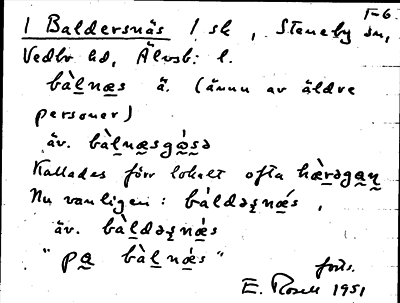 I-6.
1 Baldersnäs 1 sk, Steneby sn,
Vedbo hd, Älvsb. l.
bàl̲næs ä. (ännu av äldre
personer)
äv. bàl̲næsgǻsə
Kallades förr lokalt ofta hæ̀rəgan
Nu vanligen: báldəʂnǽs,
äv. bàldəʂnǽs
"pa bàl̲nǽs"
forts.
E. Rosell 1951